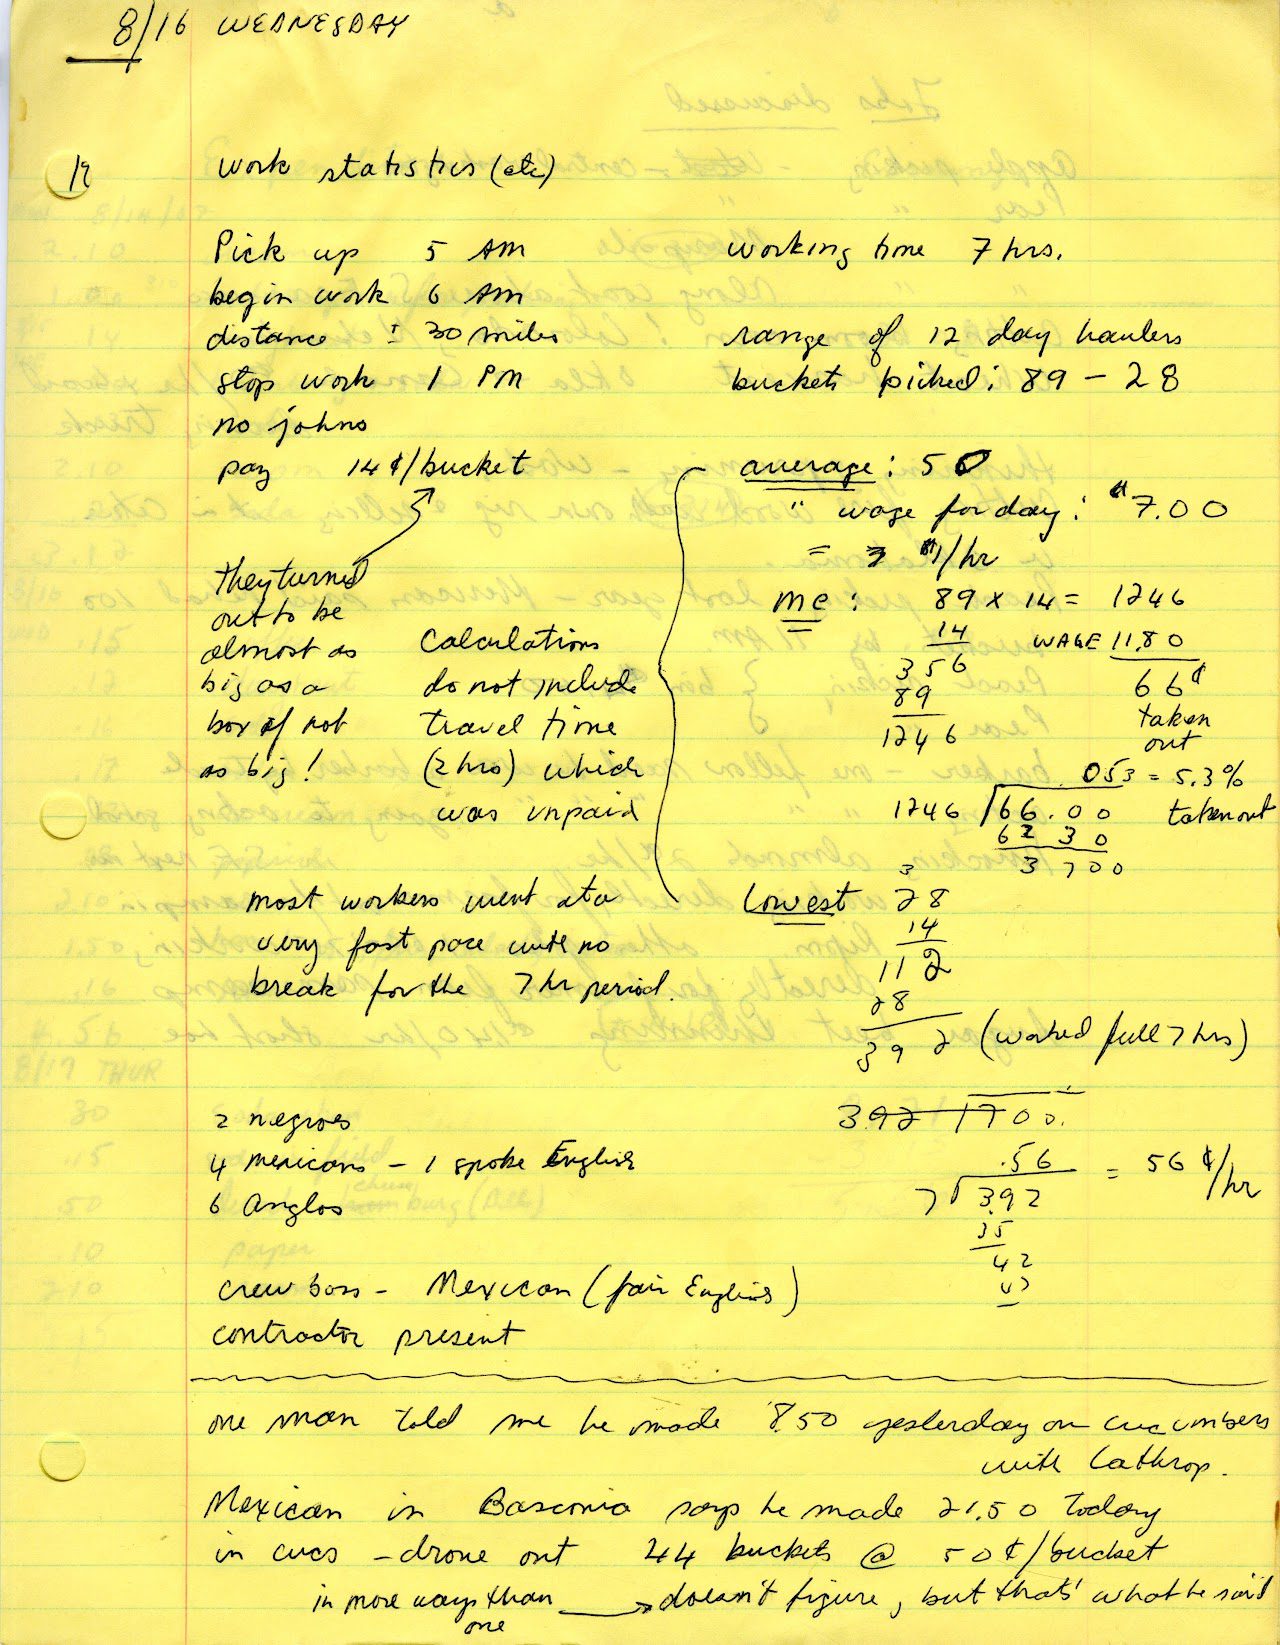 8/16 WEDNESDAY
work statistics (etc)
Pick up 5 AM
begin work 6 AM
distance ± 30 miles
stop work 1 PM
no johns
pay 14¢/bucket
they turned
out to be
almost as
big as a
box if not
as big!
Calculations
do not include
travel time
(2 hrs) which
was unpaid
most workers went at a
very fast pace with no
break for the 7 hr period.
2 negroes
4 mexicans - 1 spoke English
6 Anglos
crew boss - Mexican (fair English)
contractor present
working time 7 hrs.
range of 12 day haulers
buckets picked: 89 - 28
average: 50
" wage for day: $7.00
= $1/hr
me: 89 x 14 = 1246
14 WAGE 11.80
356 66¢
89 taken
1246 out
.053 = 5.3%
1246 66.00 taken out
62 30
3 700
Lowest 28
14
112
28
392 (worked full 7 hrs)
392 1700.
.56 = 56¢/hr
7 3.92
35
42
42
one man told me he made 8.50 yesterday on cucumbers
with Lathrop.
Mexican in Basconia says he made 21.50 today
in cucs - drove out 44 buckets @ 50¢/bucket
in more ways than doesn't figure, but that's what he said
one